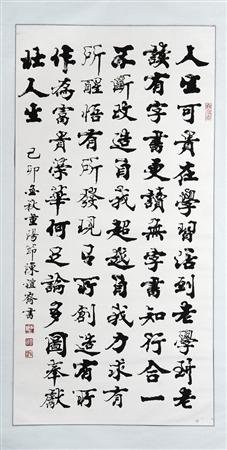 人生可貴在學習活到老學研老
讀有字書更讀無字書知行合一
不斷改造自我超越自我力求有
所醒悟有所發現有所創造有所
作為富貴榮華何足論多圖奉獻
壯人生
己卯金秋重陽節陳誼齋書